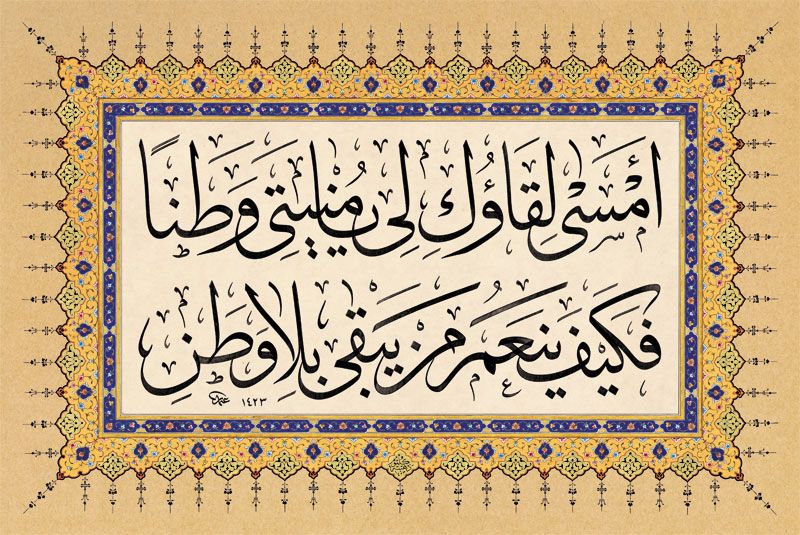 أَمْسَىٰ لِقَاؤُكِ لِي يَا مُنْيَتِي وَطَنًا
فَكَيْفَ يَنْعَمُ مَنْ يَبْقَىٰ بِلَا وَطَنِ
١٤٢٣